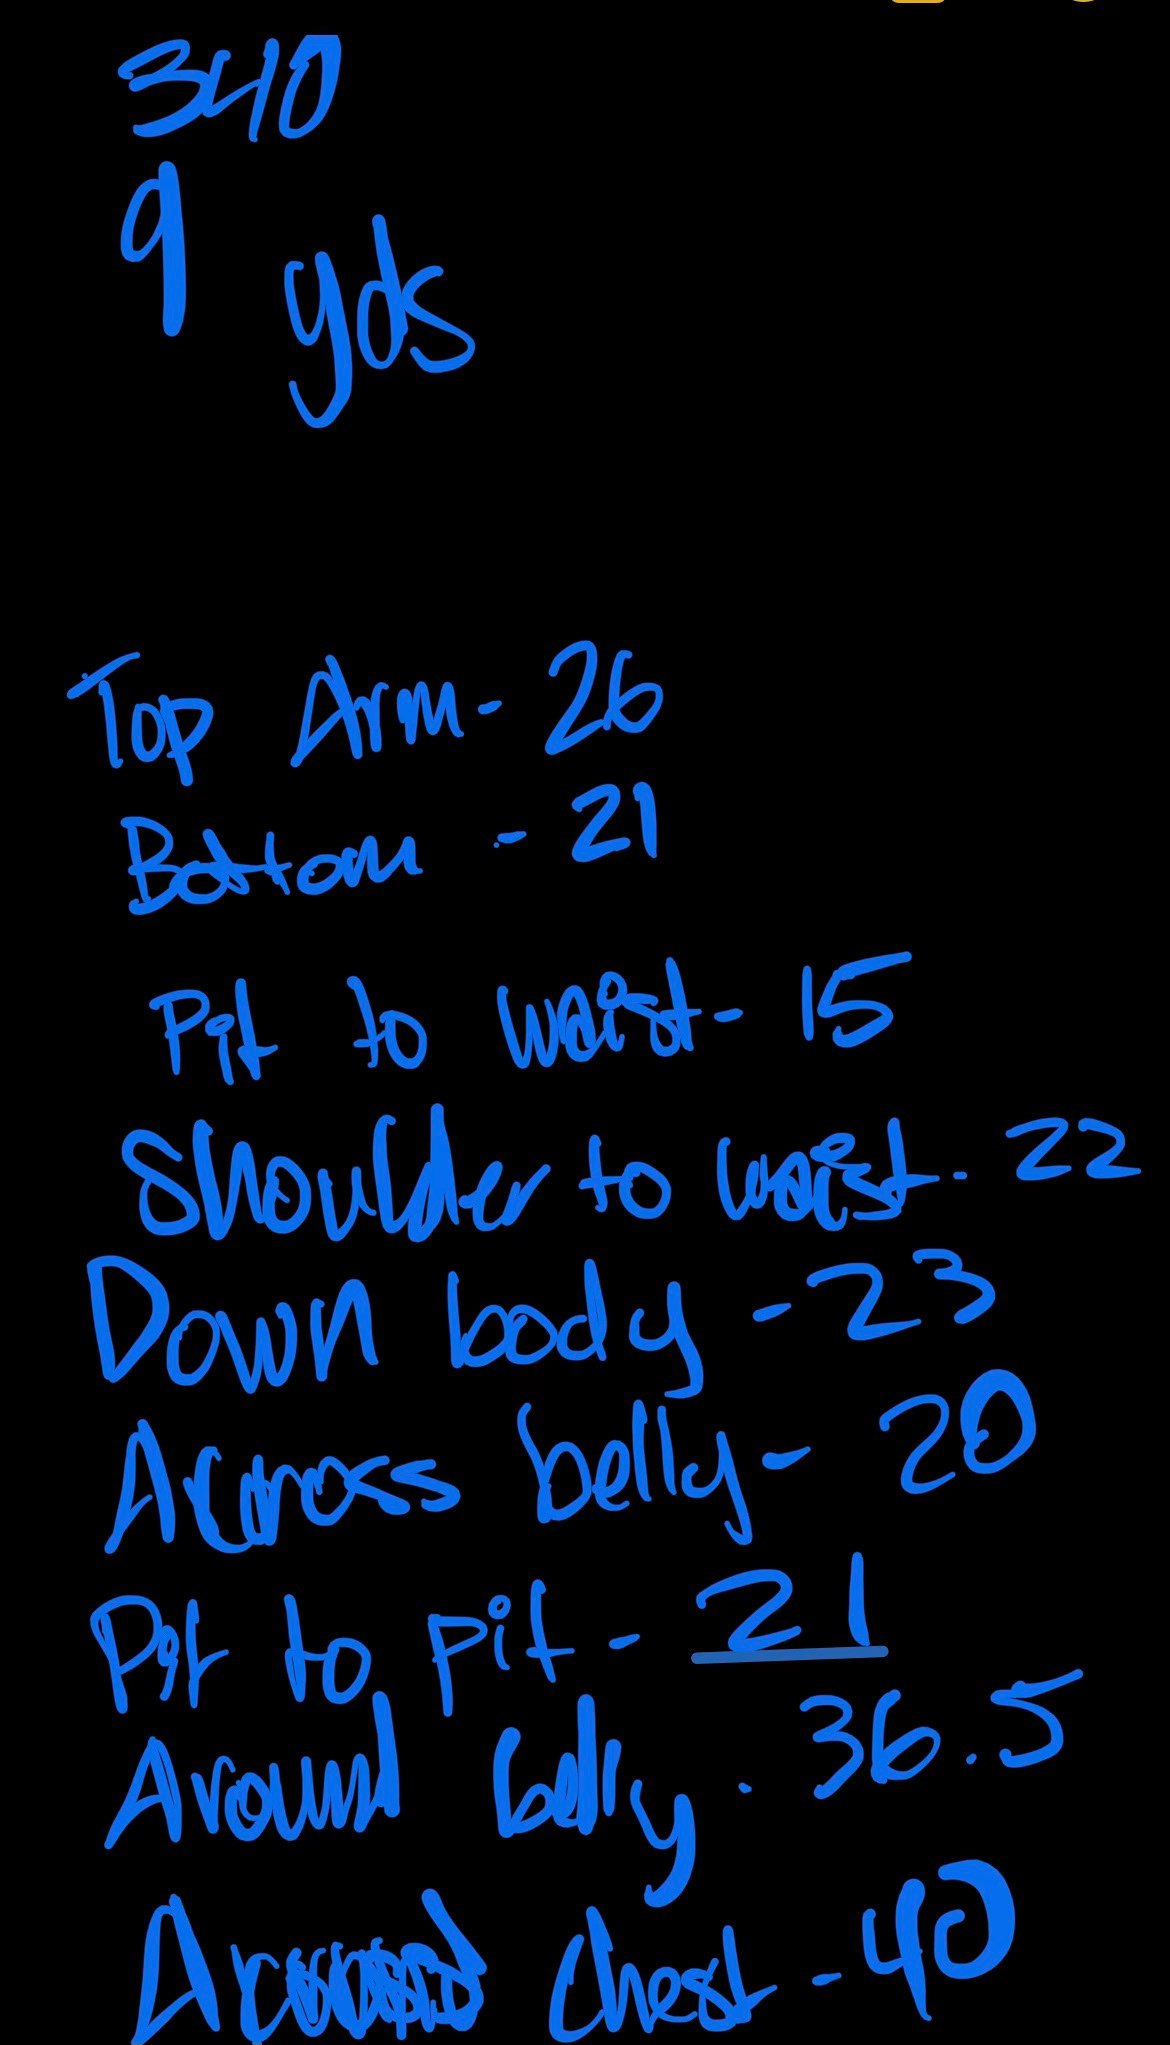 340
9 yds
Top Arm - 26
Bottom - 21
Pit to waist - 15
Shoulder to waist - 22
Down body - 23
Across belly - 20
Pit to pit - 21
Around belly - 36.5
Around chest - 40